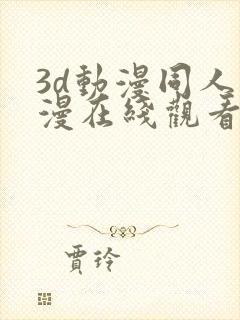 3d動漫同人
漫在綫觀看
賈玲